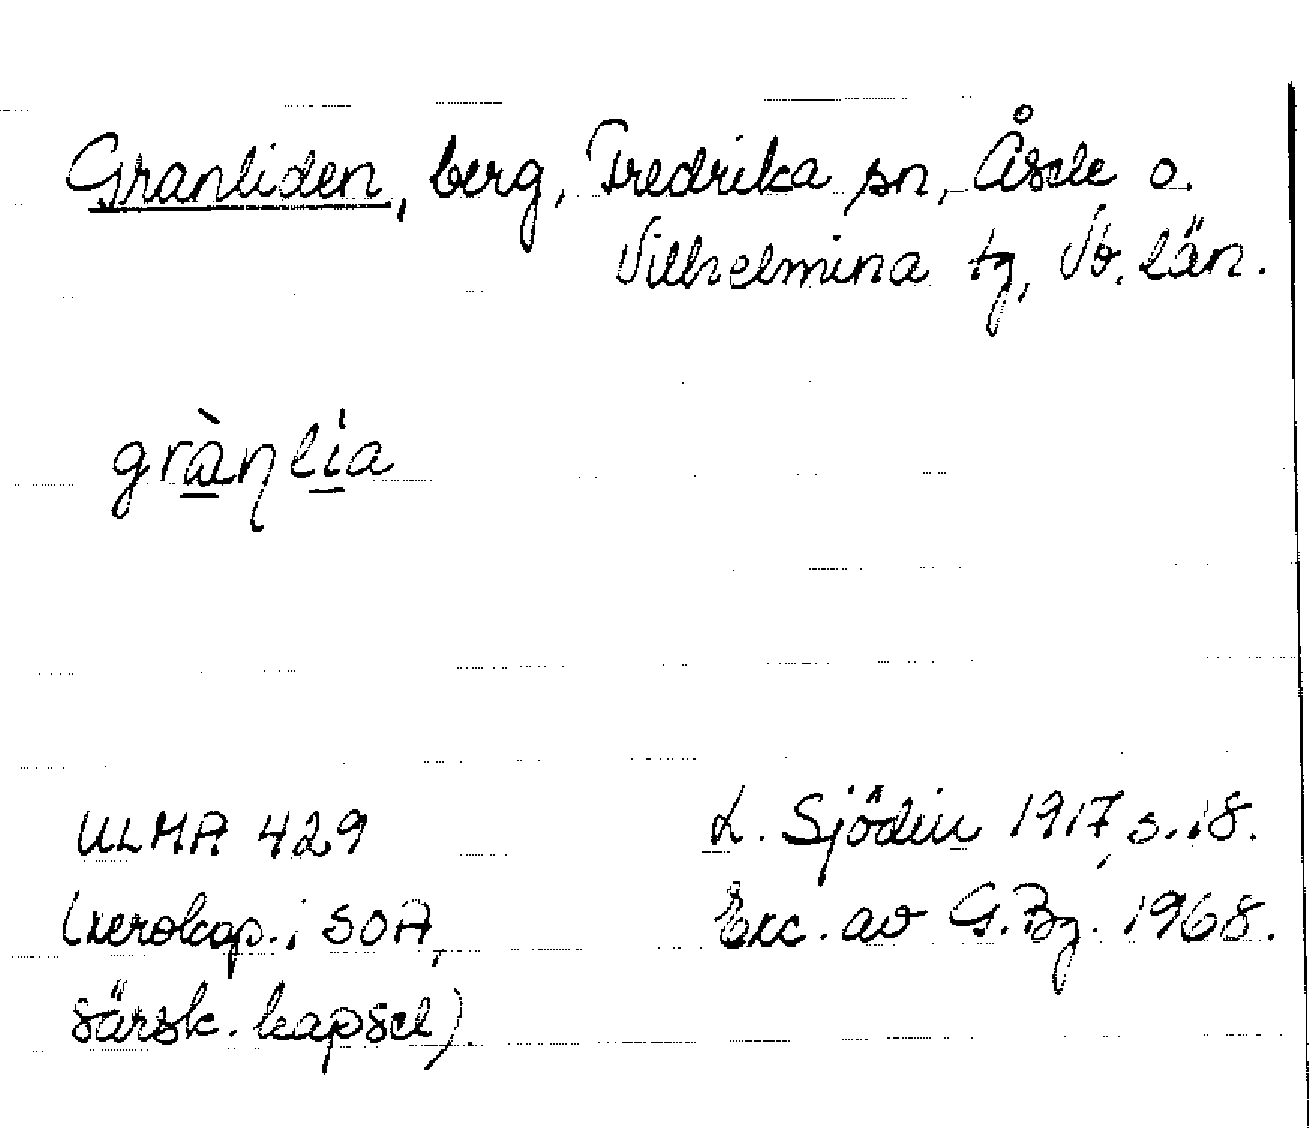 Granliden, berg, Fredrika sn, Åsele o.
Vilhelmina tg, Vb. län.
grànlia
ULMA 429
(xerokop. i SOA,
särsk. kapsel)
L. Sjödin 1917, s. 18.
Exc. av G.Bg. 1968.